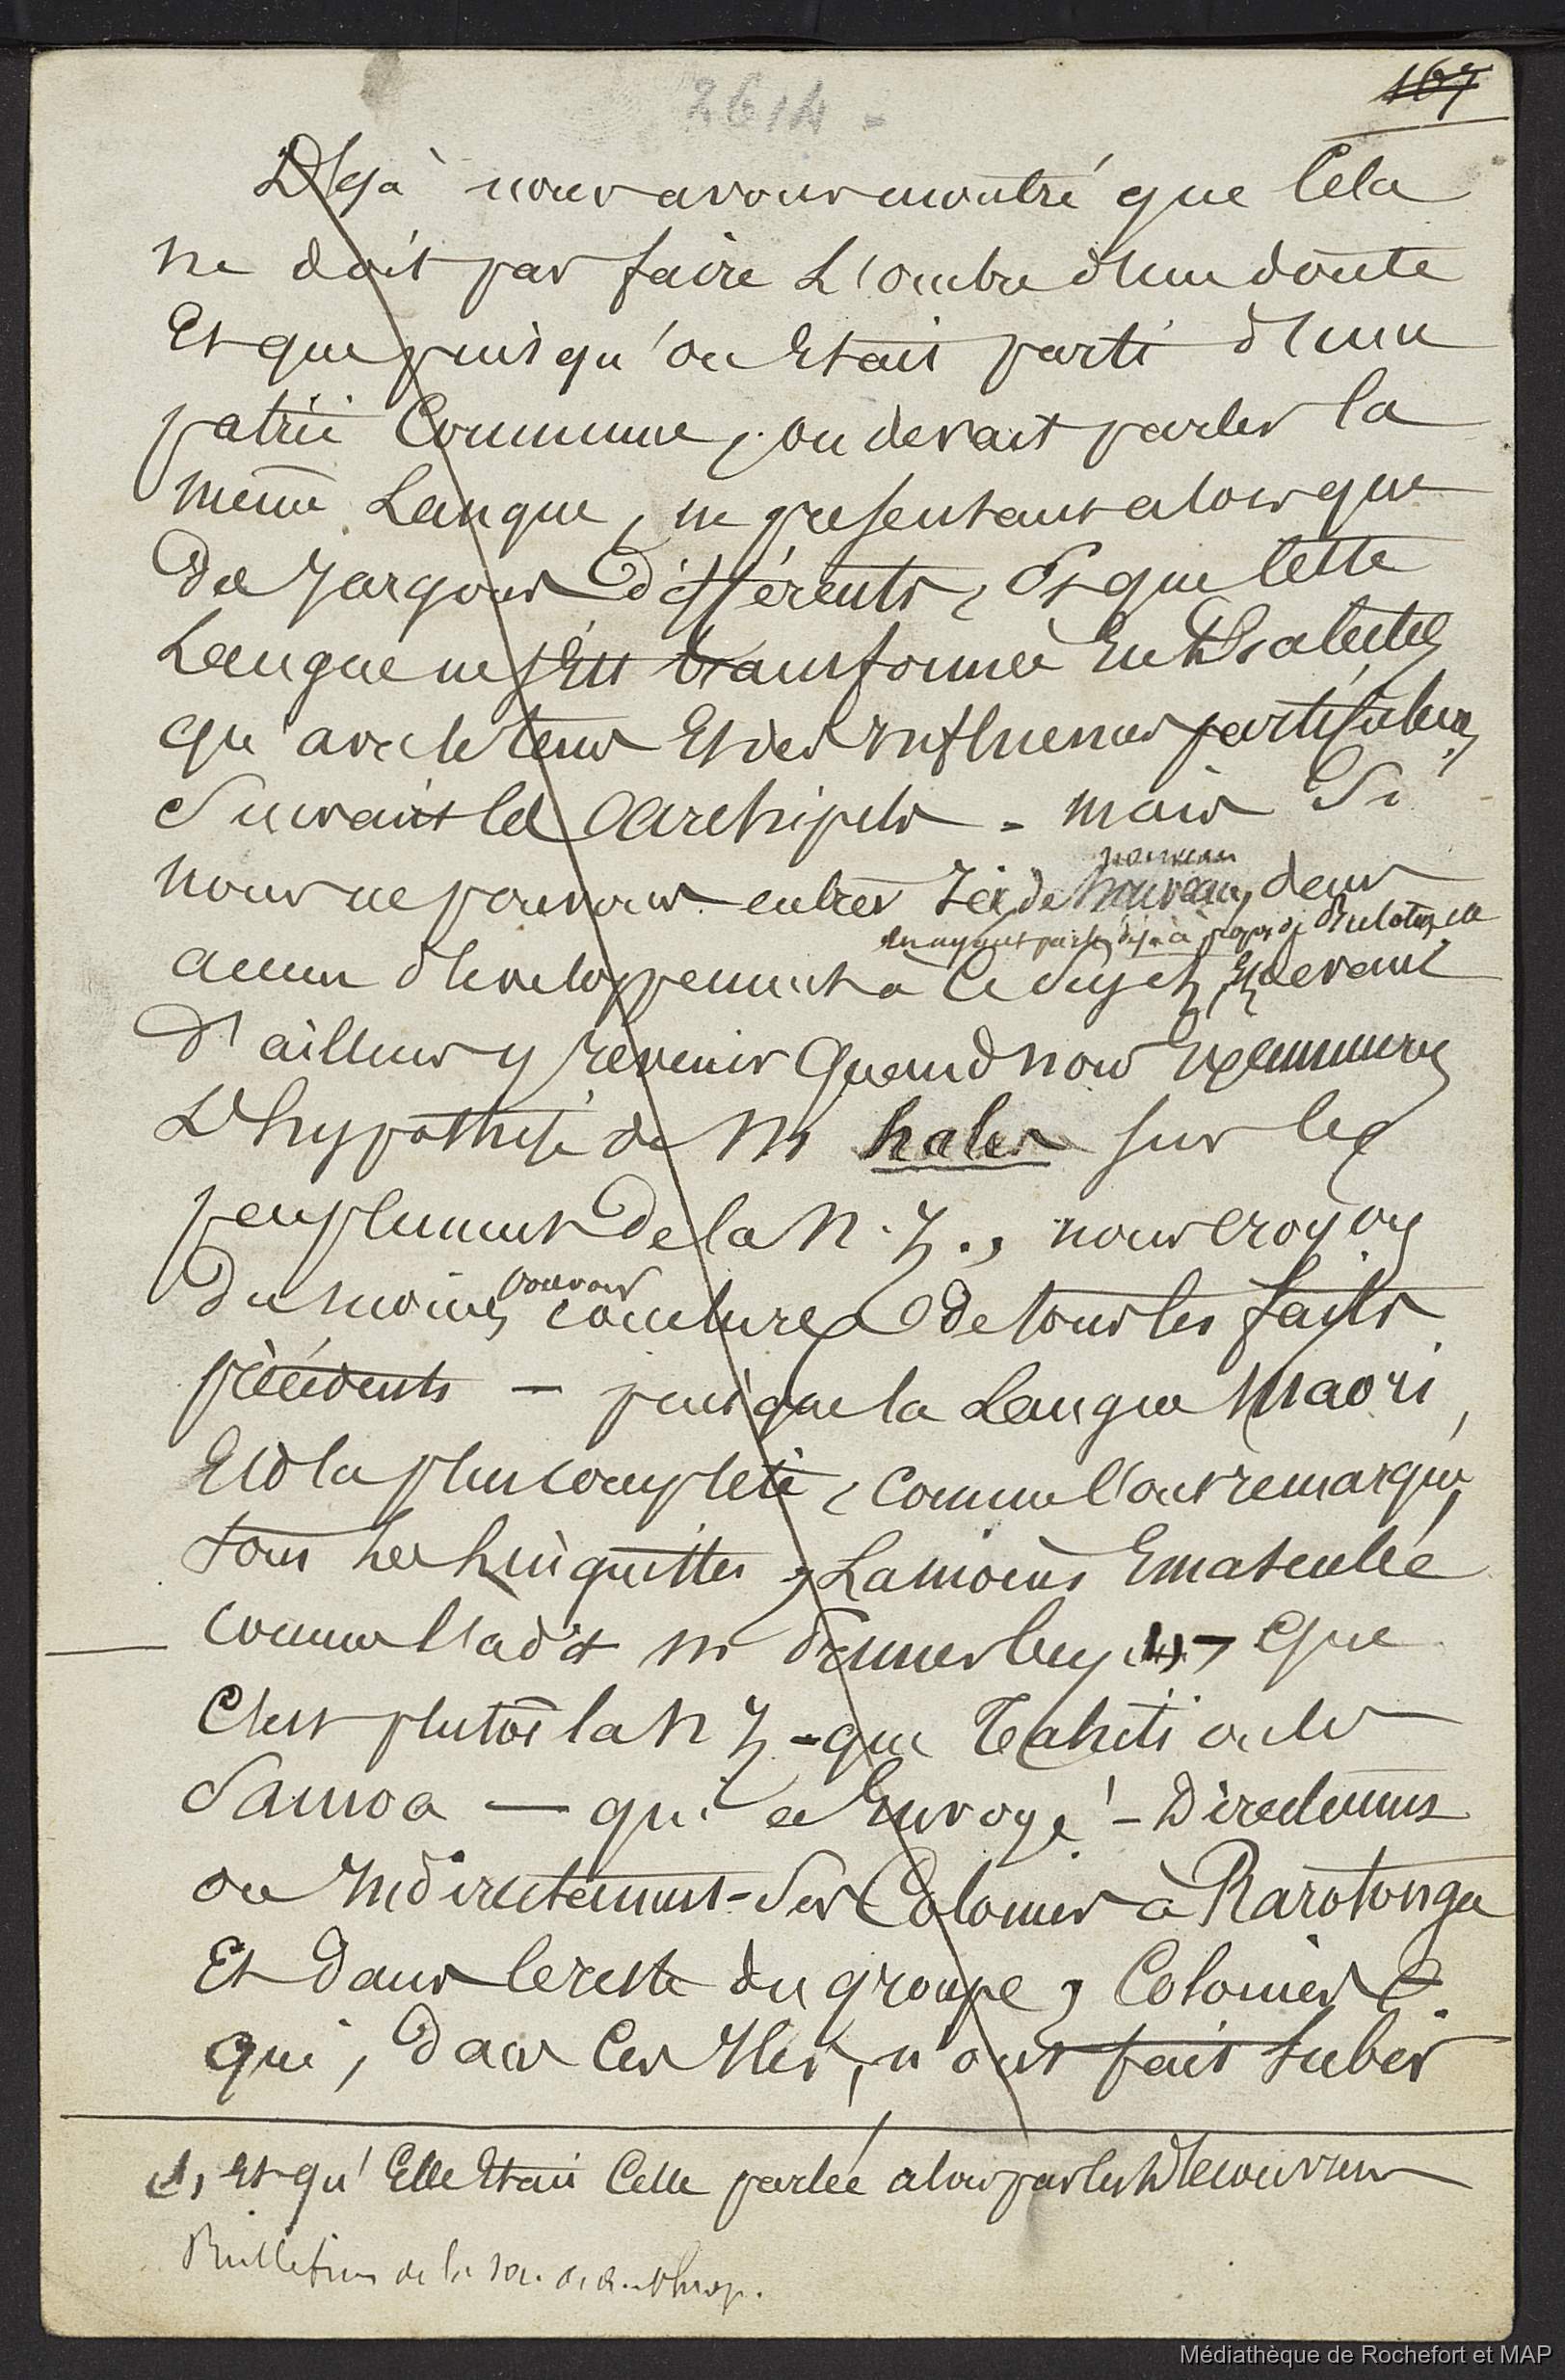 2614 -
167
Déjà nous avons montré que Cela
ne doit pas faire L'ombre d'un doute
Et que puisqu'on Etait parti d'une
patrie Commune, on devait parler la
même Langue, ne présentant alors que
De Jargons Différents, Et que Cette
Langue ne s'est transformée En Dialectes
qu'avec le tems Et des Influences particulières
Suivant les Archipels - mais Si
nouveau
nous ne pouvons entrer Ici de nouveau, dans
en ayant parlé déjà à propos de
aucun développement à Ce Sujet, Et devant
D'ailleurs y revenir Quand nous Examinerons
L'hypothèse de Mr hales sur le
peuplement De la N. Z., nous croyons
pouvoir
Du moins conclure De tous les faits
précédents - puisque la Langue Maori,
Est la plus complète, comme l'ont remarqué,
tous Les Linguistes, La moins Emasculée
comme l'a dit Mr (1) - que
C'est plutôt la N Z - que Tahiti ou les
Samoa — qui a Envoyé - Directement
ou Indirectement - Ses Colonies à Rarotonga
Et Dans le reste du groupe, Colonies
qui, Dans Ces Iles, n'ont fait subir
1, Et qu'Elle Etait Celle parlée alors par les Découvreurs
Bulletins de la soc. d'anthrop.
Médiathèque de Rochefort et MAP